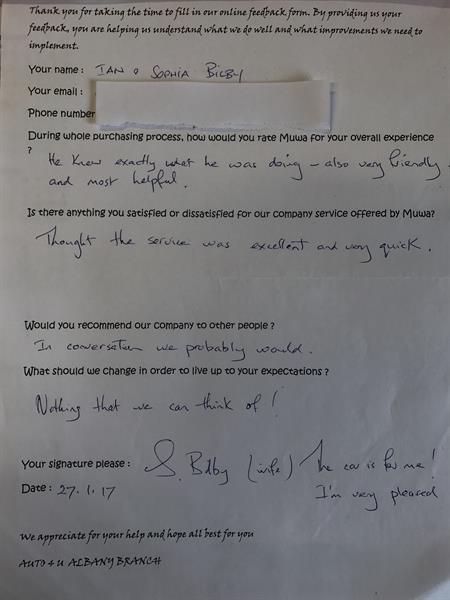 Thank you for taking the time to fill in our online feedback form. By providing us your
feedback, you are helping us understand what we do well and what improvements we need to
implement.
Your name : IAN & SOPHIA
Your email :
Phone number
During whole purchasing process, how would you rate Muwa for your overall experience
?
He knew exactly what he was doing - also very friendly
and most helpful.
Is there anything you satisfied or dissatisfied for our company service offered by Muwa?
Thought the service was excellent and very quick.
Would you recommend our company to other people ?
In conversation we probably would.
What should we change in order to live up to your expectations ?
Nothing that we can think of !
Your signature please : S. (wife) The car is for me!
Date : 27.1.17 I'm very pleased
We appreciate for your help and hope all best for you
AUTO 4 U ALBANY BRANCH